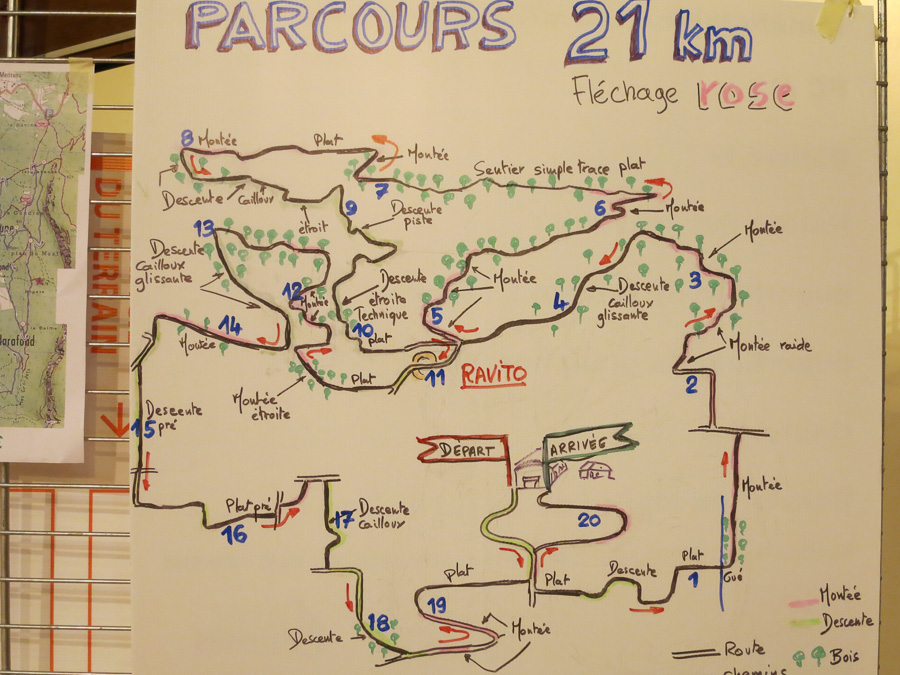 PARCOURS 21 km
Fléchage rose
8 Montée Plat Montée
Sentier simple trace plat
7
Descente Cailloux
étroit
9
Descente
piste
6
Montée
Montée
13
Descente
cailloux
glissante
12
Montée
Descente
étroite
Technique
10
plat
Montée
5
4
Descente
cailloux
glissante
3
14
Montée
Montée raide
2
Plat
11
RAVITO
Montée
étroite
15
Descente
pré
DÉPART
ARRIVÉE
Montée
Plat pré
16
17
Descente
Cailloux
20
plat
Plat
Descente
Plat
1
Gué
19
18
Descente
Montée
Montée
Descente
Route
Bois
chemins
DU TERRAIN